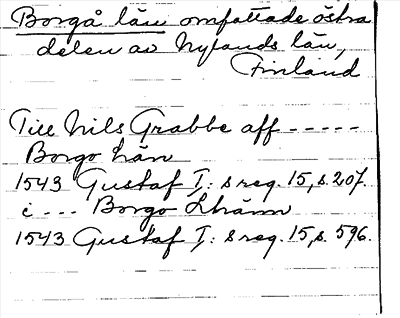 Borgå län omfattade östra
delen av Nylands län,
Finland
Till Nils Grabbe aff -----
Borgo län
1543 Gustaf I: s reg. 15, s. 207.
i --- Borgo
1543 Gustaf I: s reg. 15, s. 596.